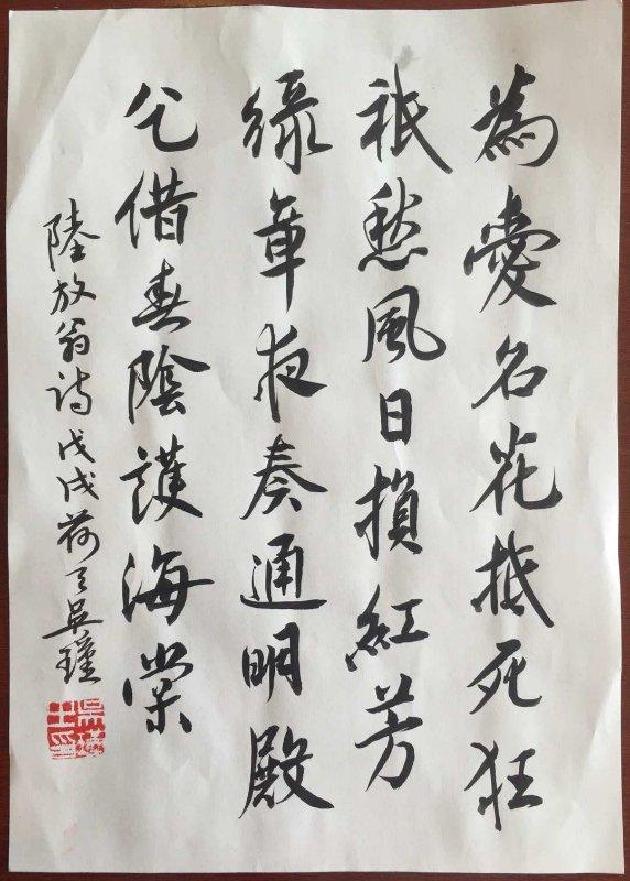 為愛名花抵死狂
祇愁風日損紅芳
綠章夜奏通明殿
乞借春陰護海棠
陸放翁詩戊戌荷月吳瑾